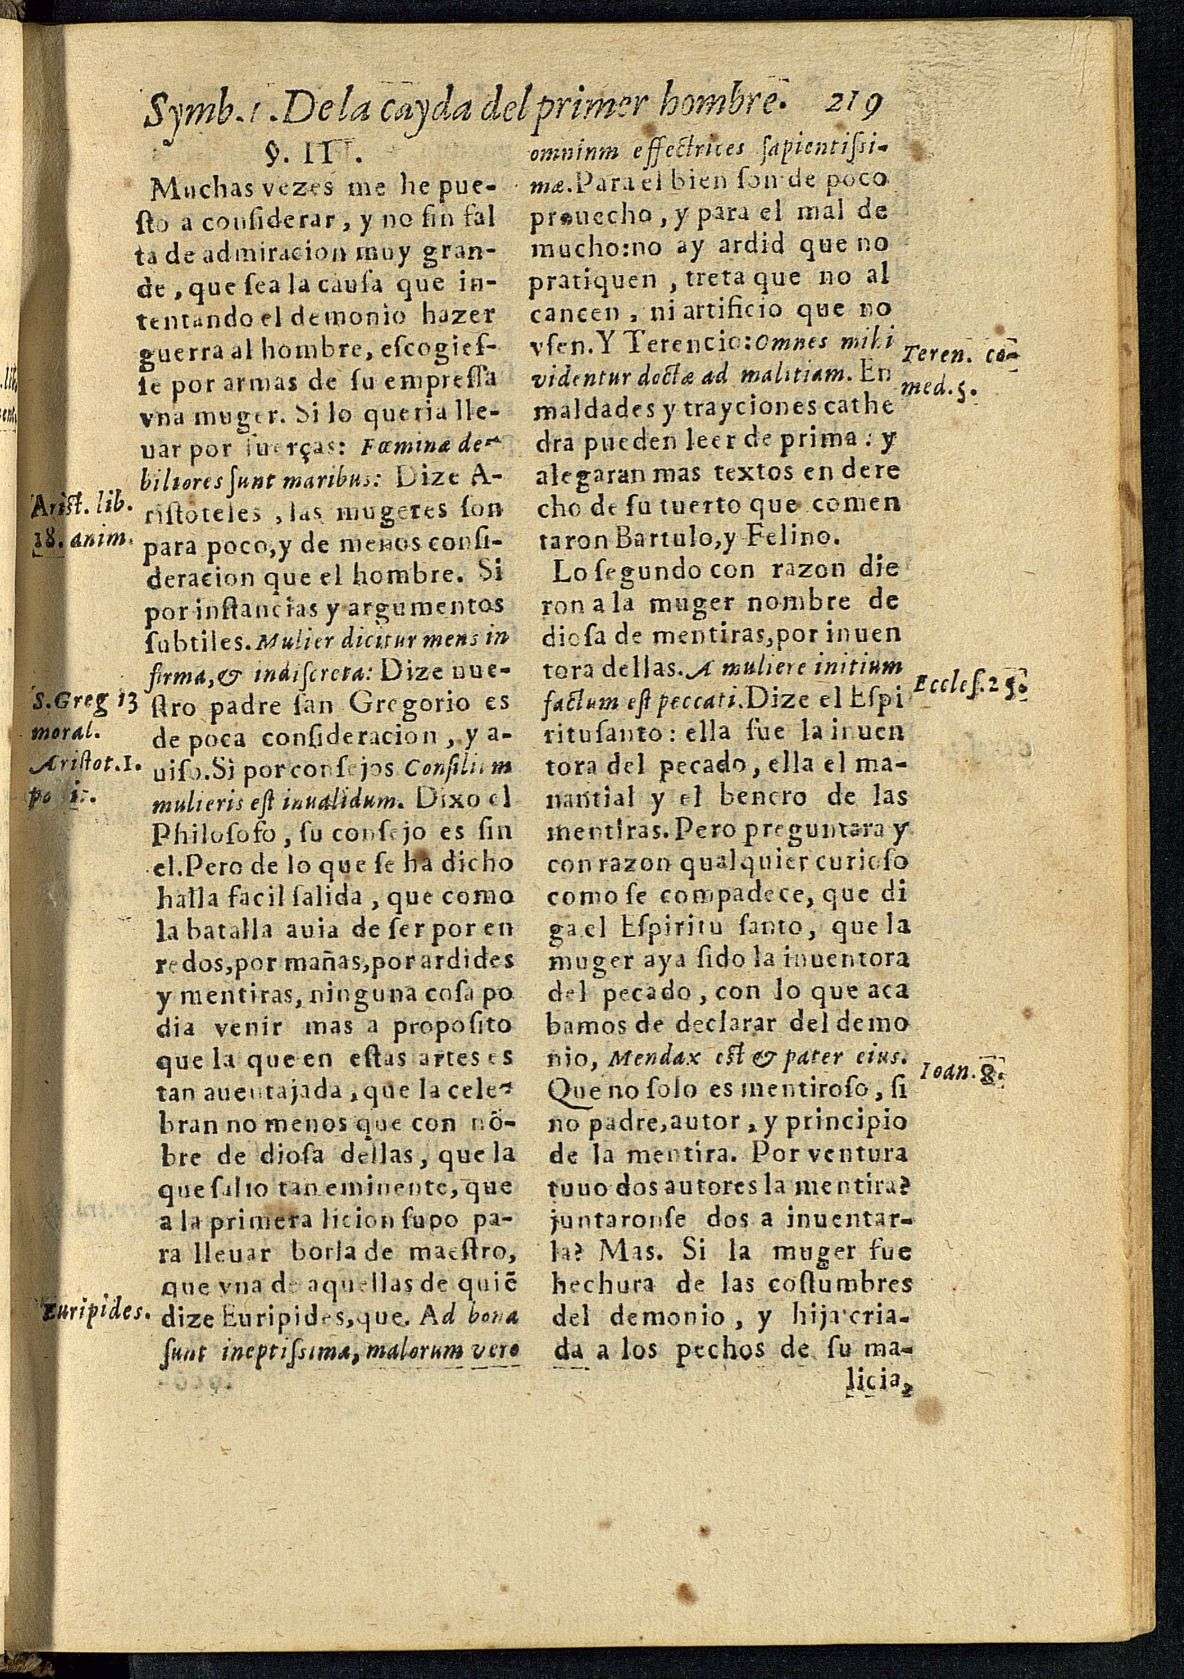 Symb. 1. De la cayda del primer hombre. 219
§. III.
Muchas vezes me he pue-
sto a considerar, y no sin fal
ta de admiracion muy gran-
de, que sea la causa que in-
tentando el demonio hazer
guerra al hombre, escogies-
se por armas de su empressa
vna muger. Si lo queria lle-
uar por fuerças: Fœminæ de-
biliores sunt maribus: Dize A-
ristoteles, las mugeres son
para poco, y de menos consi-
deracion que el hombre. Si
por instancias y argumentos
subtiles. Mulier dicitur mens in
firma, & indiscreta: Dize nue-
stro padre san Gregorio es
de poca consideracion, y a-
uiso. Si por consejos Consilium
mulieris est inualidum. Dixo el
Philosofo, su consejo es sin
el. Pero de lo que se ha dicho
halla facil salida, que como
la batalla auia de ser por en
redos, por mañas, por ardides
y mentiras, ninguna cosa po
dia venir mas a proposito
que la que en estas artes es
tan auentajada, que la cele-
bran no menos que con nõ-
bre de diosa dellas, que la
que salio tan eminente, que
a la primera licion supo pa-
ra lleuar borla de maestro,
que vna de aquellas de quiē
dize Euripides, que. Ad bona
sunt ineptissimæ, malorum vero
Arist. lib.
18. anim.
S. Greg 13
moral.
Aristot. 1.
Euripides.
omnium effectrices sapientissi-
mæ. Para el bien son de poco
prouecho, y para el mal de
mucho: no ay ardid que no
pratiquen, treta que no al
cancen, ni artificio que no
vsen. Y Terencio: Omnes mihi
videntur doctæ ad malitiam. En
maldades y trayciones cathe
dra pueden leer de prima: y
alegaran mas textos en dere
cho de su tuerto que comen
taron Bartulo, y Felino.
Lo segundo con razon die
ron a la muger nombre de
diosa de mentiras, por inuen
tora dellas. A muliere initium
factum est peccati. Dize el Espi
ritu santo: ella fue la inuen
tora del pecado, ella el ma-
nantial y el benero de las
mentiras. Pero preguntara y
con razon qualquier curioso
como se compadece, que di
ga el Espiritu santo, que la
muger aya sido la inuentora
del pecado, con lo que aca
bamos de declarar del demo
nio, Mendax est & pater eius.
Que no solo es mentiroso, si
no padre, autor, y principio
de la mentira. Por ventura
tuuo dos autores la mentira?
juntaronse dos a inuentar-
la? Mas. Si la muger fue
hechura de las costumbres
del demonio, y hija cria-
da a los pechos de su ma-
licia,
Teren. co-
med. 5.
Eccles. 25.
Ioan. 8.